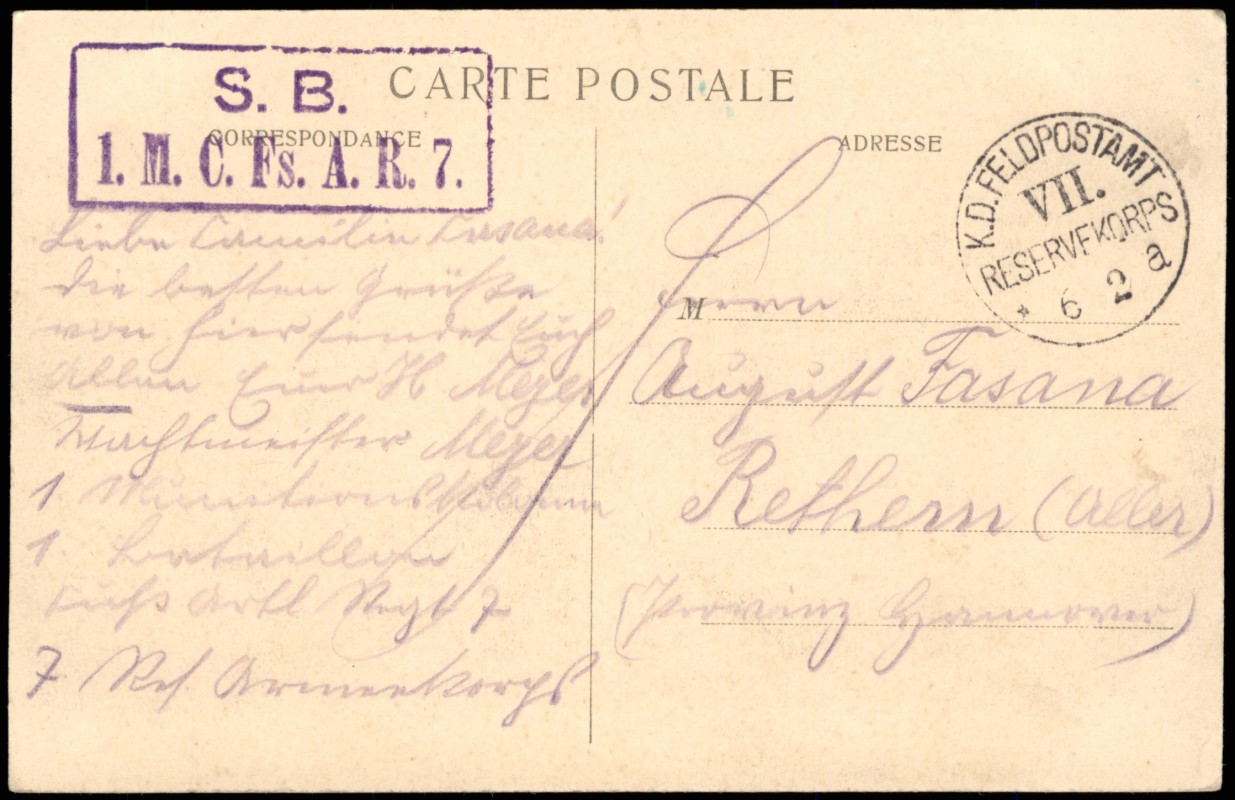 S. B.
1. M. C. Fs. A. R. 7.
CARTE POSTALE
CORRESPONDANCE
ADRESSE
K.D. FELDPOSTAMT S
VII.
RESERVEKORPS
* 6 2 a
Liebe Familie Fasana!
die besten Grüße
von hier sendet Euch
Allen Euer H Meyer
Wachtmeister Meyer
1. Munitionskolonne
1 Bataillon
Fuß Artl Regt 7
7 Res Armeekorps
M
Herrn
August Fasana
Rethem (Aller)
(Provinz Hannover)